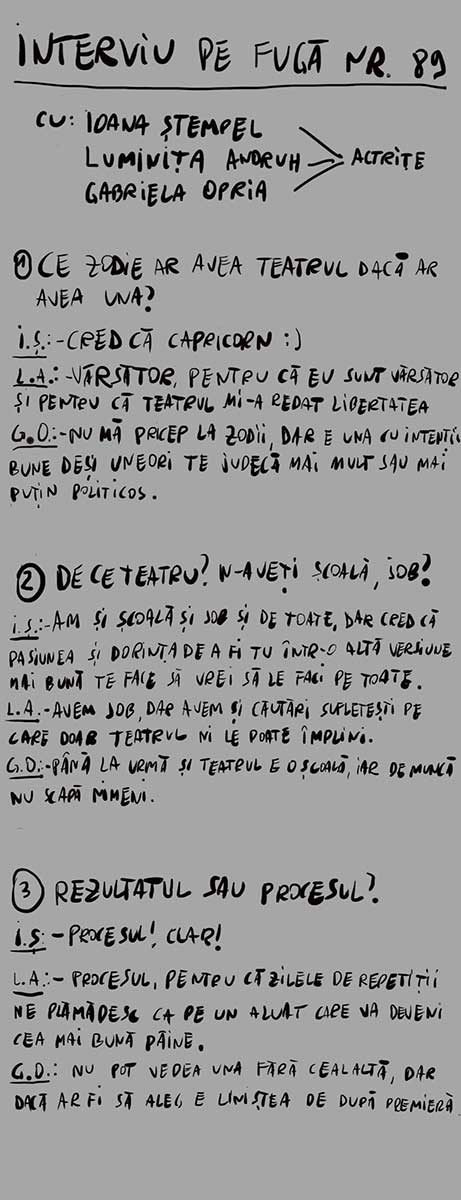 INTERVIU PE FUGĂ NR. 89
CU: IOANA ȘTEMPEL
LUMINIȚA ANDRUH
GABRIELA OPRIA
ACTRIȚE
① CE ZODIE AR AVEA TEATRUL DACĂ AR
AVEA UNA?
I.Ș.: - CRED CĂ CAPRICORN :)
L.A.: - VĂRSĂTOR, PENTRU CĂ EU SUNT VĂRSĂTOR
ȘI PENTRU CĂ TEATRUL MI-A REDAT LIBERTATEA
G.O.: - NU MĂ PRICEP LA ZODII, DAR E UNA CU INTENȚII
BUNE DEȘI UNEORI TE JUDECĂ MAI MULT SAU MAI
PUȚIN POLITICOS.
② DE CE TEATRU? N-AVEȚI ȘCOALĂ, JOB?
I.Ș.: - AM ȘI ȘCOALĂ ȘI JOB ȘI DE TOATE, DAR CRED CĂ
PASIUNEA ȘI DORINȚA DE A FI TU ÎNTR-O ALTĂ VERSIUNE
MAI BUNĂ TE FACE SĂ VREI SĂ LE FACI PE TOATE.
L.A. - AVEM JOB, DAR AVEM ȘI CĂUTĂRI SUFLETEȘTI PE
CARE DOAR TEATRUL NI LE POATE ÎMPLINI.
G.O.: - PÂNĂ LA URMĂ ȘI TEATRUL E O ȘCOALĂ, IAR DE MUNCĂ
NU SCAPĂ NIMENI.
③ REZULTATUL SAU PROCESUL?
I.Ș: - PROCESUL! CLAR!
L.A.: - PROCESUL, PENTRU CĂ ZILELE DE REPETIȚII
NE PLĂMĂDESC CA PE UN ALUAT CARE VA DEVENI
CEA MAI BUNĂ PÂINE.
G.O.: NU POT VEDEA UNA FĂRĂ CEALALTĂ, DAR
DACĂ AR FI SĂ ALEG, E LINIȘTEA DE DUPĂ PREMIERĂ